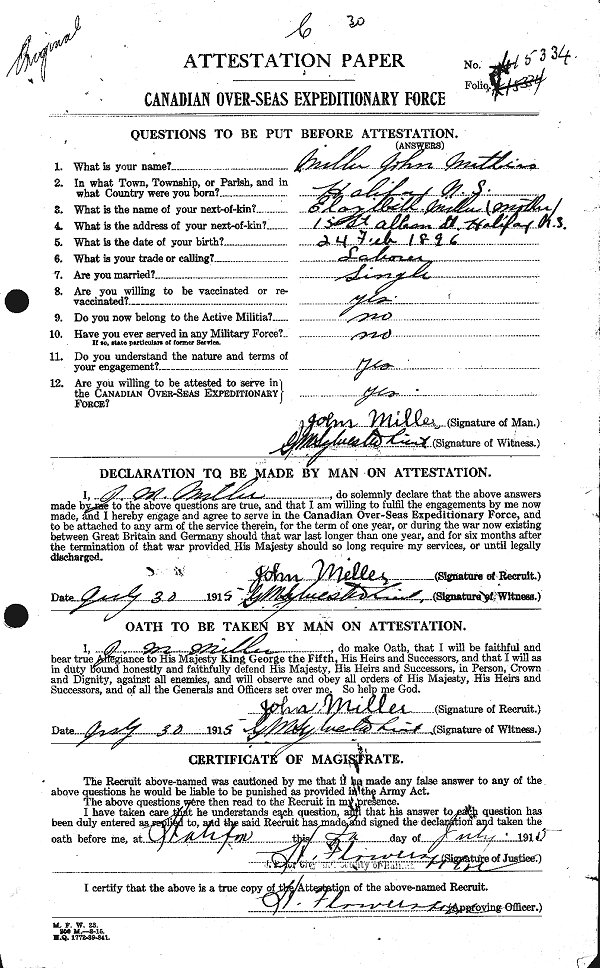 Original
C 30
ATTESTATION PAPER
No. 415334.
Folio.
CANADIAN OVER-SEAS EXPEDITIONARY FORCE
QUESTIONS TO BE PUT BEFORE ATTESTATION.
(ANSWERS)
1. What is your name? Miller John
2. In what Town, Township, or Parish, and in
what Country were you born? Halifax N.S.
3. What is the name of your next-of-kin? Miller (Mother)
4. What is the address of your next-of-kin? St, Halifax N.S.
5. What is the date of your birth? 24 Feb 1896
6. What is your trade or calling? Laborer
7. Are you married? Single
8. Are you willing to be vaccinated or re-
vaccinated? yes.
9. Do you now belong to the Active Militia? no
10. Have you ever served in any Military Force? no
If so, state particulars of former Service.
11. Do you understand the nature and terms of
your engagement? Yes
12. Are you willing to be attested to serve in
the CANADIAN OVER-SEAS EXPEDITIONARY yes
FORCE?
John Miller (Signature of Man.)
(Signature of Witness.)
DECLARATION TO BE MADE BY MAN ON ATTESTATION.
I, J. M. Miller, do solemnly declare that the above answers
made by me to the above questions are true, and that I am willing to fulfil the engagements by me now
made, and I hereby engage and agree to serve in the Canadian Over-Seas Expeditionary Force, and
to be attached to any arm of the service therein, for the term of one year, or during the war now existing
between Great Britain and Germany should that war last longer than one year, and for six months after
the termination of that war provided His Majesty should so long require my services, or until legally
discharged.
John Miller (Signature of Recruit.)
Date July 30 1915 (Signature of Witness.)
OATH TO BE TAKEN BY MAN ON ATTESTATION.
I, J. M. Miller, do make Oath, that I will be faithful and
bear true Allegiance to His Majesty King George the Fifth, His Heirs and Successors, and that I will as
in duty bound honestly and faithfully defend His Majesty, His Heirs and Successors, in Person, Crown
and Dignity, against all enemies, and will observe and obey all orders of His Majesty, His Heirs and
Successors, and of all the Generals and Officers set over me. So help me God.
John Miller (Signature of Recruit.)
Date July 30 1915 (Signature of Witness.)
CERTIFICATE OF MAGISTRATE.
The Recruit above-named was cautioned by me that if he made any false answer to any of the
above questions he would be liable to be punished as provided in the Army Act.
The above questions were then read to the Recruit in my presence.
I have taken care that he understands each question, and that his answer to each question has
been duly entered as replied to, and the said Recruit has made and signed the declaration and taken the
oath before me, at Halifax this day of July 1915
H. Flowers (Signature of Justice.)
I certify that the above is a true copy of the Attestation of the above-named Recruit.
H. Flowers (Approving Officer.)
M. F. W. 23.
200 M.—8-15.
H.Q. 1772-39-841.